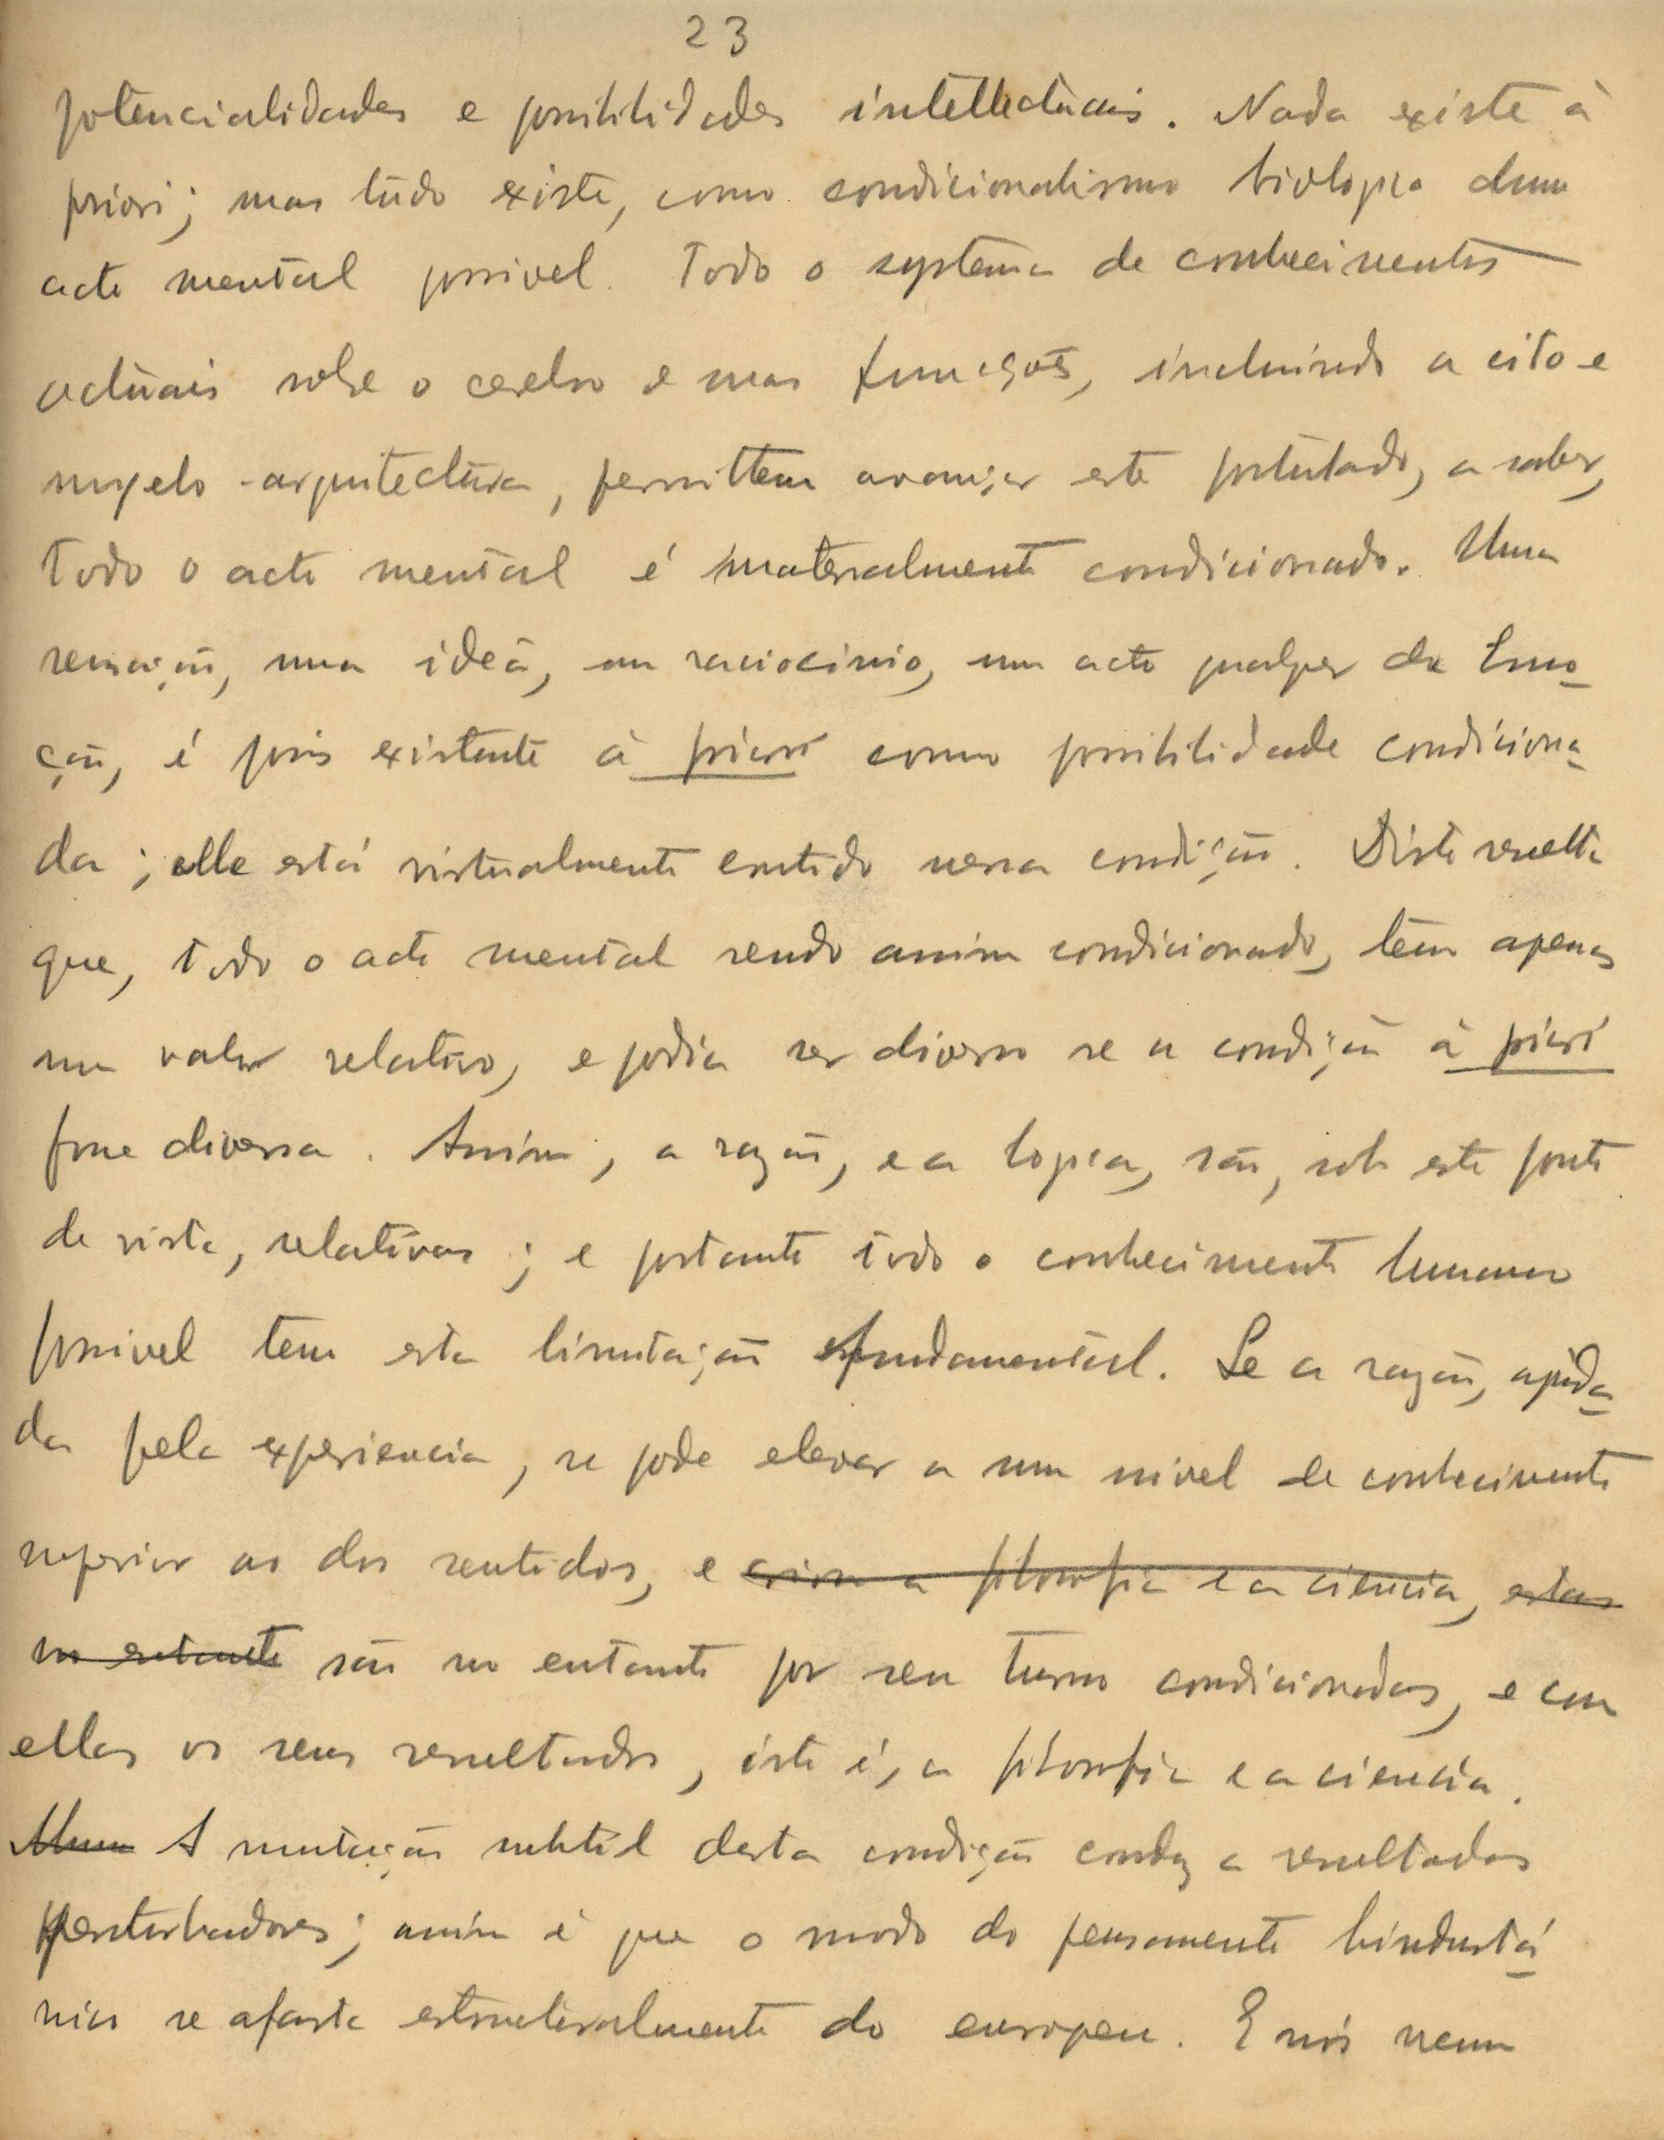 23
potencialidades e possibilidades intellectuais. Nada existe à
priori; mas tudo existe, como condicionalismo biologico dum
acto mental possivel. Todo o systema de conhecimentos
actuais sobre o cerebro e suas funcções, incluindo a cito e
myelo-arquitectura, permittem avançar este postulado, a saber,
todo o acto mental é materialmente condicionado. Uma
sensação, uma ideã, um raciocinio, um acto qualquer da Emo-
ção, é pois existente à priori como possibilidade condiciona-
da; elle está virtualmente contido nessa condição. Disto resulta
que, todo o acto mental sendo assim condicionado, tem apenas
um valor relativo, e podia ser diverso se a condição à priori
fosse diversa. Assim, a razão, e a logica, são, sob este ponto
de vista, relativas; e portanto todo o conhecimento humano
possivel tem esta limitação fundamental. Se a razão, ajuda-
da pela experiencia, se pode elevar a um nivel de conhecimento
superior ao dos sentidos, e criar a filosofia e a ciencia, estas
no entanto são no entanto por seu turno condicionadas, e com
ellas os seus resultados, isto é, a filosofia e a ciencia.
Uma A mutação subtil desta condição conduz a resultados
perturbadores; assim é que o modo do pensamento hindustá-
nico se afasta estructuralmente do europeu. E nós nem